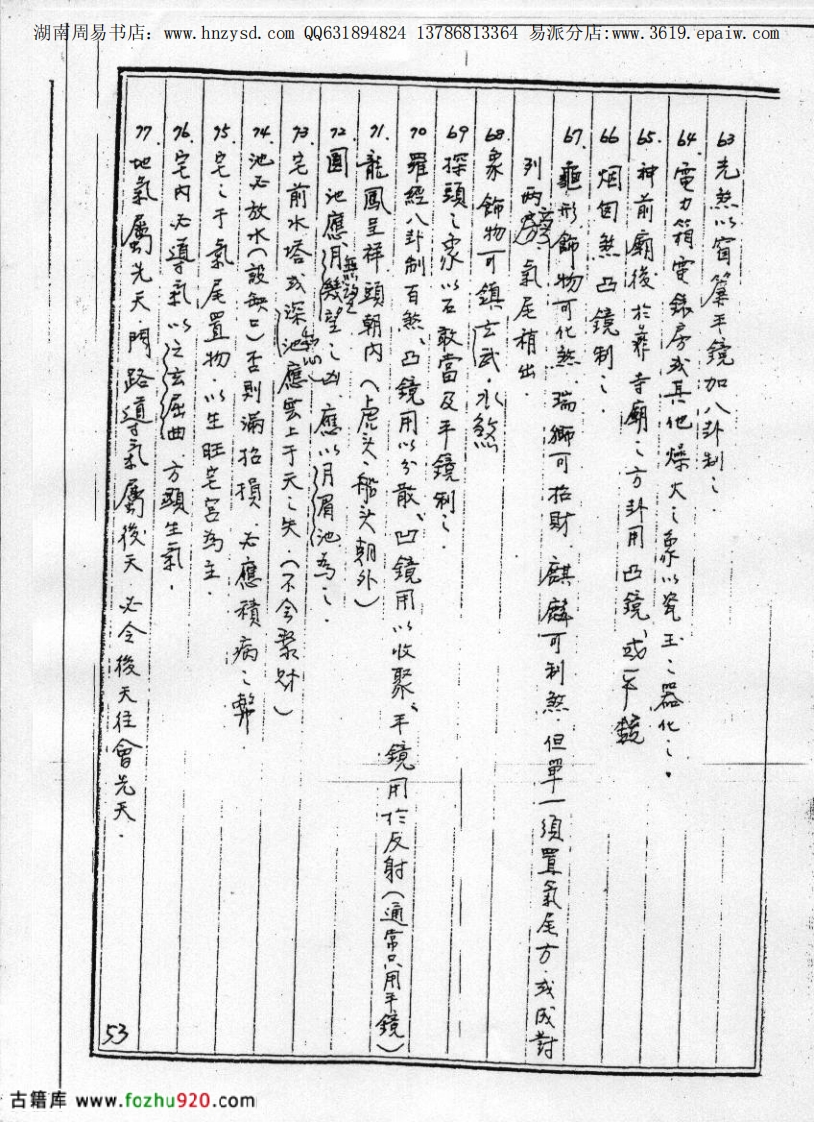 湖南周易书店：www.hnzysd.com QQ631894824 13786813364 易派分店:www.3619.epaiw.com
63 光煞以窗簾平鏡加八卦制之.
64. 電力箱電錶房或其他燥火之象以瓷玉之器化之。
65. 神前廟後於菲寺廟之方卦用凸鏡、或平鏡
66 烟囱煞凸鏡制之.
67. 龜形飾物可化煞.瑞獅可招財.麒麟可制煞.但單一須置氣尾方.或成對
列两旁.氣尾稍出.
68. 象飾物可鎮玄武.水煞
69 探頭之象以石敢當及平鏡制之.
70 羅經八卦制百煞、凸鏡用以分散、凹鏡用以收聚、平鏡用於反射(通常只用平鏡)
71. 龍鳳呈祥頭朝内(上虎头、船头朝外)
72 圓池應月幾望之凶.應以月眉池為之.
無望
73. 宅前水塔或深池應雲上于天之失.(不会聚财)
74. 池必放水(設缺口)否則滿招損.必應積病之弊
75 宅之于氣尾置物.以生旺宅宮為主.
76. 宅内必導氣以之玄屈曲.方顯生氣.
77. 地氣屬先天門路導氣屬後天.必令後天往會先天.
53
古籍库 www.fozhu920.com